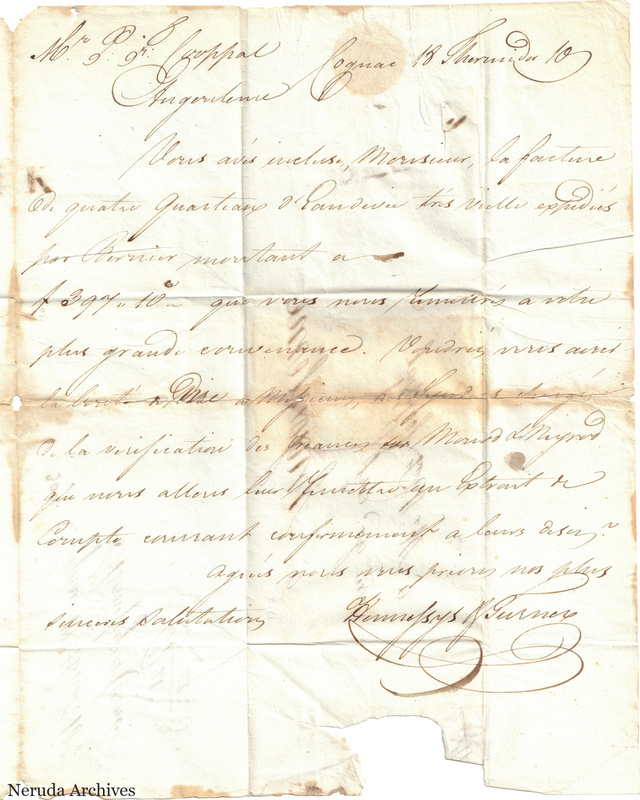 Mr. P. Jn. Croppal Cognac 18 Thermidor 10
Angouleme
Vous avés incluse, Monsieur, la facture
de quatre quarteaux d'Eaudevie très vielle expediés
par Bernier montant a
f 397 " 10 c que vous nous remettrés a votre
plus grande convenance. Voudriés vous avoir
la bonté de dire a Messieurs, les chargés
de la verification des creances sur
que nous allons leur remettre un Extrait de
Compte courant conformement a leurs desirs.
Agreés nous vous prions nos plus
sinceres salutations Hennessys & Turner
Neruda Archives